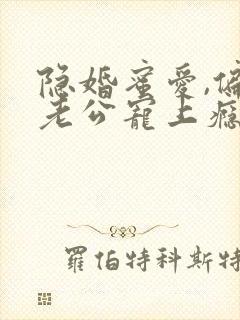 隐婚蜜爱,偏
老公宠上瘾
羅伯特科斯特